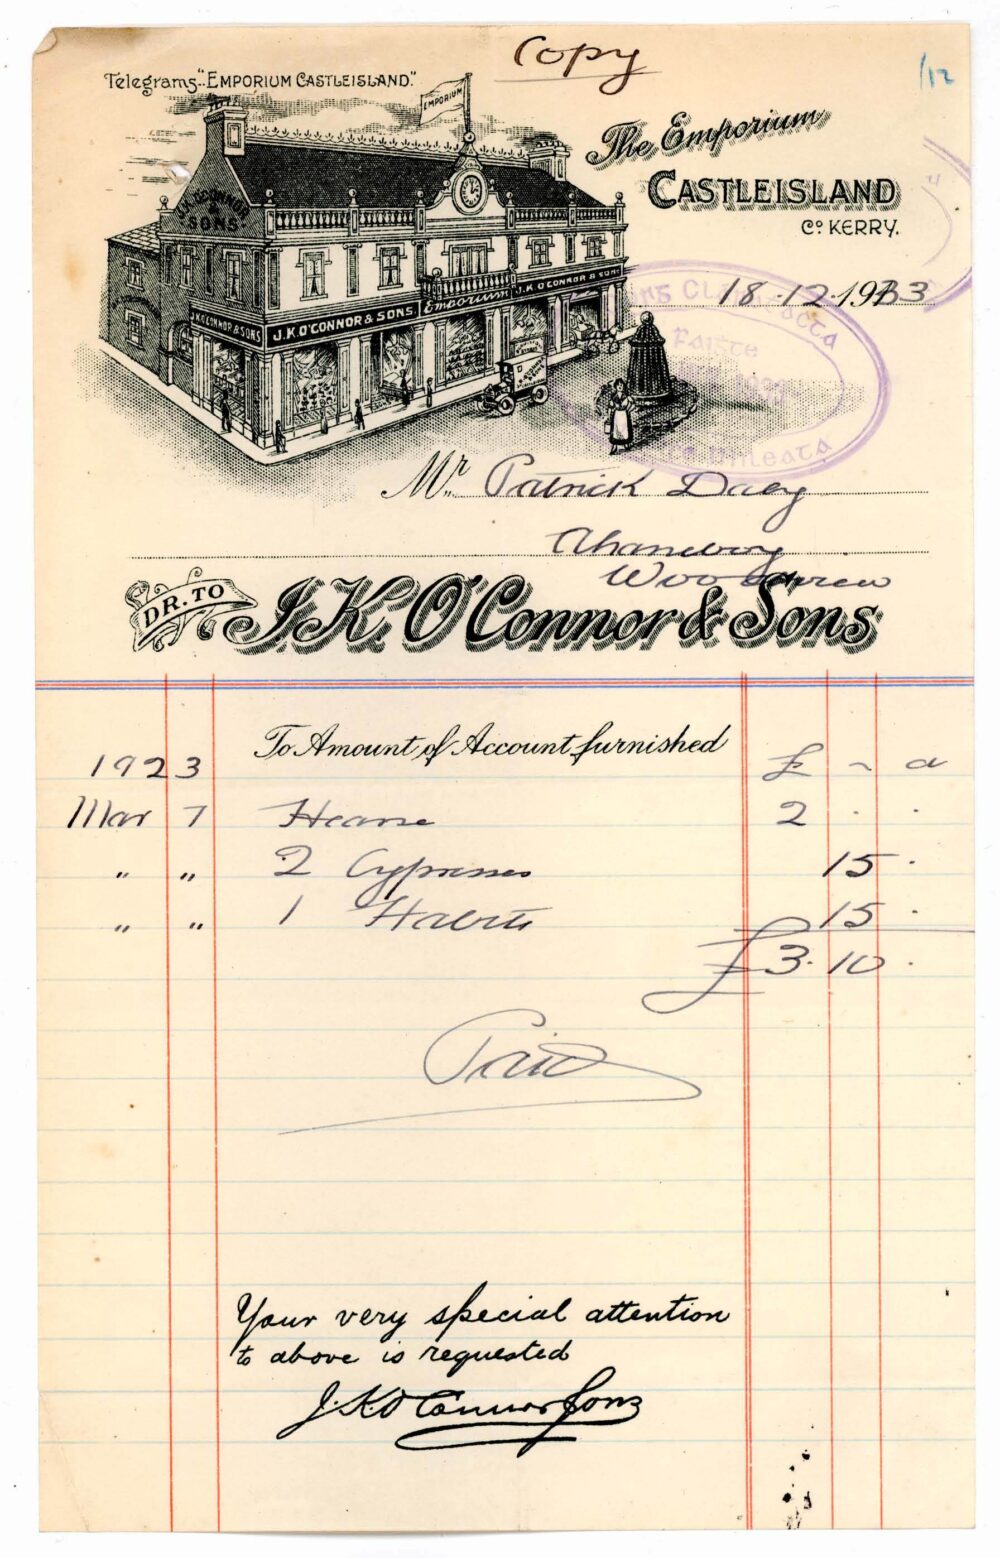 Copy
/12
Telegrams "EMPORIUM CASTLEISLAND."
EMPORIUM
The Emporium
CASTLEISLAND
Co. KERRY.
J.K. O'CONNOR
& SONS.
J.K. O'CONNOR & SONS
J.K. O'CONNOR & SONS.
Emporium
J.K. O'CONNOR & SONS
18-12-1933
Faisce
Mr. Patrick Daly
Ahaneboy
DR. TO
J.K. O'Connor & Sons
To Amount of Account furnished
1923 £ ~ d
Mar 7 Hearse 2 . .
" " 2 Cypresses 15 .
" " 1 Habits 15 .
£3.10 .
Paid
Your very special attention
to above is requested
J.K.O'Connor Sons